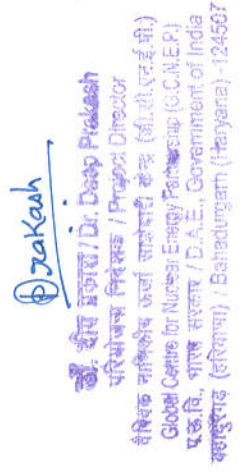 Prakash
डॉ. दीप प्रकाश / Dr. Deep Prakash
परियोजना निदेशक / Project Director
वैश्विक नाभिकीय ऊर्जा साझेदारी केंद्र (जी.सी.एन.ई.पी.)
Global Centre for Nuclear Energy Partnership (G.C.N.E.P.)
प.ऊ.वि., भारत सरकार / D.A.E., Government of India
बहादुरगढ़ (हरियाणा) / Bahadurgarh (Haryana) -124507